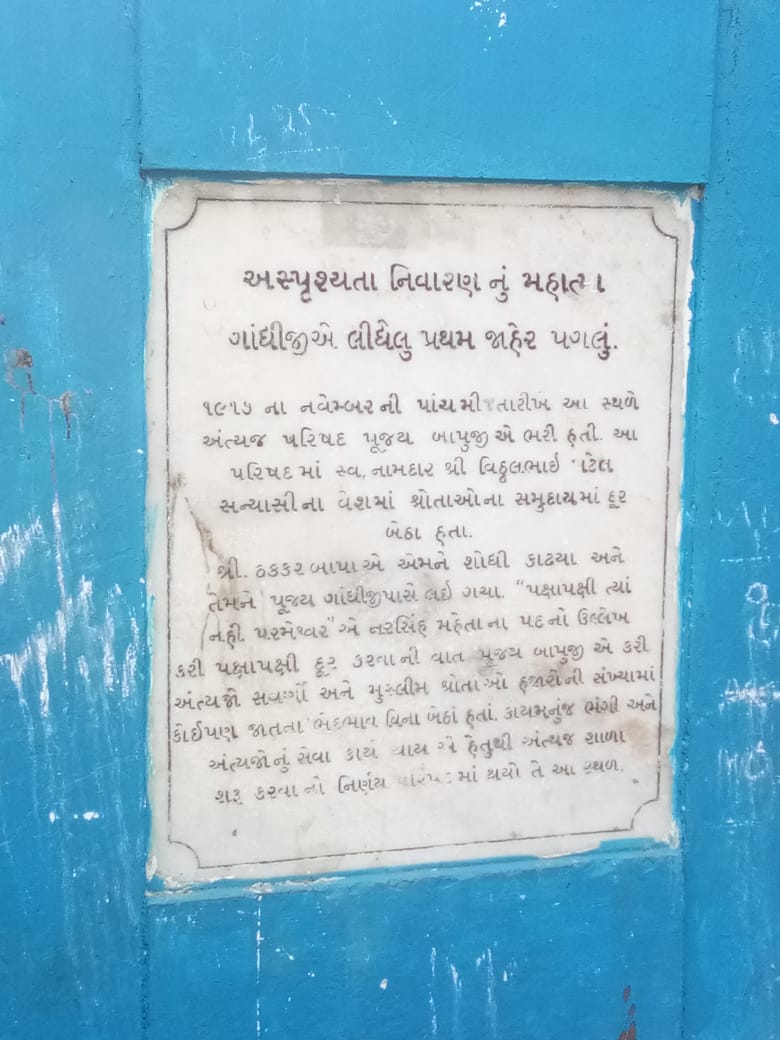 અસ્પૃશ્યતા નિવારણ નું મહાત્મા
ગાંધીજીએ લીધેલુ પ્રથમ જાહેર પગલું.
૧૯૧૭ ના નવેમ્બર ની પાંચમી તારીખે આ સ્થળે
અંત્યજ પરિષદ પૂજય બાપુજી એ ભરી હતી. આ
પરિષદ માં સ્વ. નામદાર શ્રી વિઠ્ઠલભાઇ પટેલ
સન્યાસી ના વેશમાં શ્રોતાઓ ના સમુદાય માં દૂર
બેઠા હતા.
શ્રી. ઠક્કર બાપા એ એમને શોધી કાઢયા અને
તેમને પૂજય ગાંધીજીપાસે લઇ ગયા. "પક્ષાપક્ષી ત્યાં
નહી પરમેશ્વર" એ નરસિંહ મહેતા ના પદ નો ઉલ્લેખ
કરી પક્ષાપક્ષી દૂર કરવા ની વાત પૂજય બાપુજી એ કરી
અંત્યજો સવર્ણો અને મુસ્લીમ શ્રોતાઓ હજારોની સંખ્યામાં
કોઈપણ જાતના ભેદભાવ વિના બેઠાં હતાં. કાયમનુંજ ભંગી અને
અંત્યજો નું સેવા કાર્ય થાય એ હેતુથી અંત્યજ શાળા
શરૂ કરવા નો નિર્ણય પરિષદ માં થયો તે આ સ્થળ.